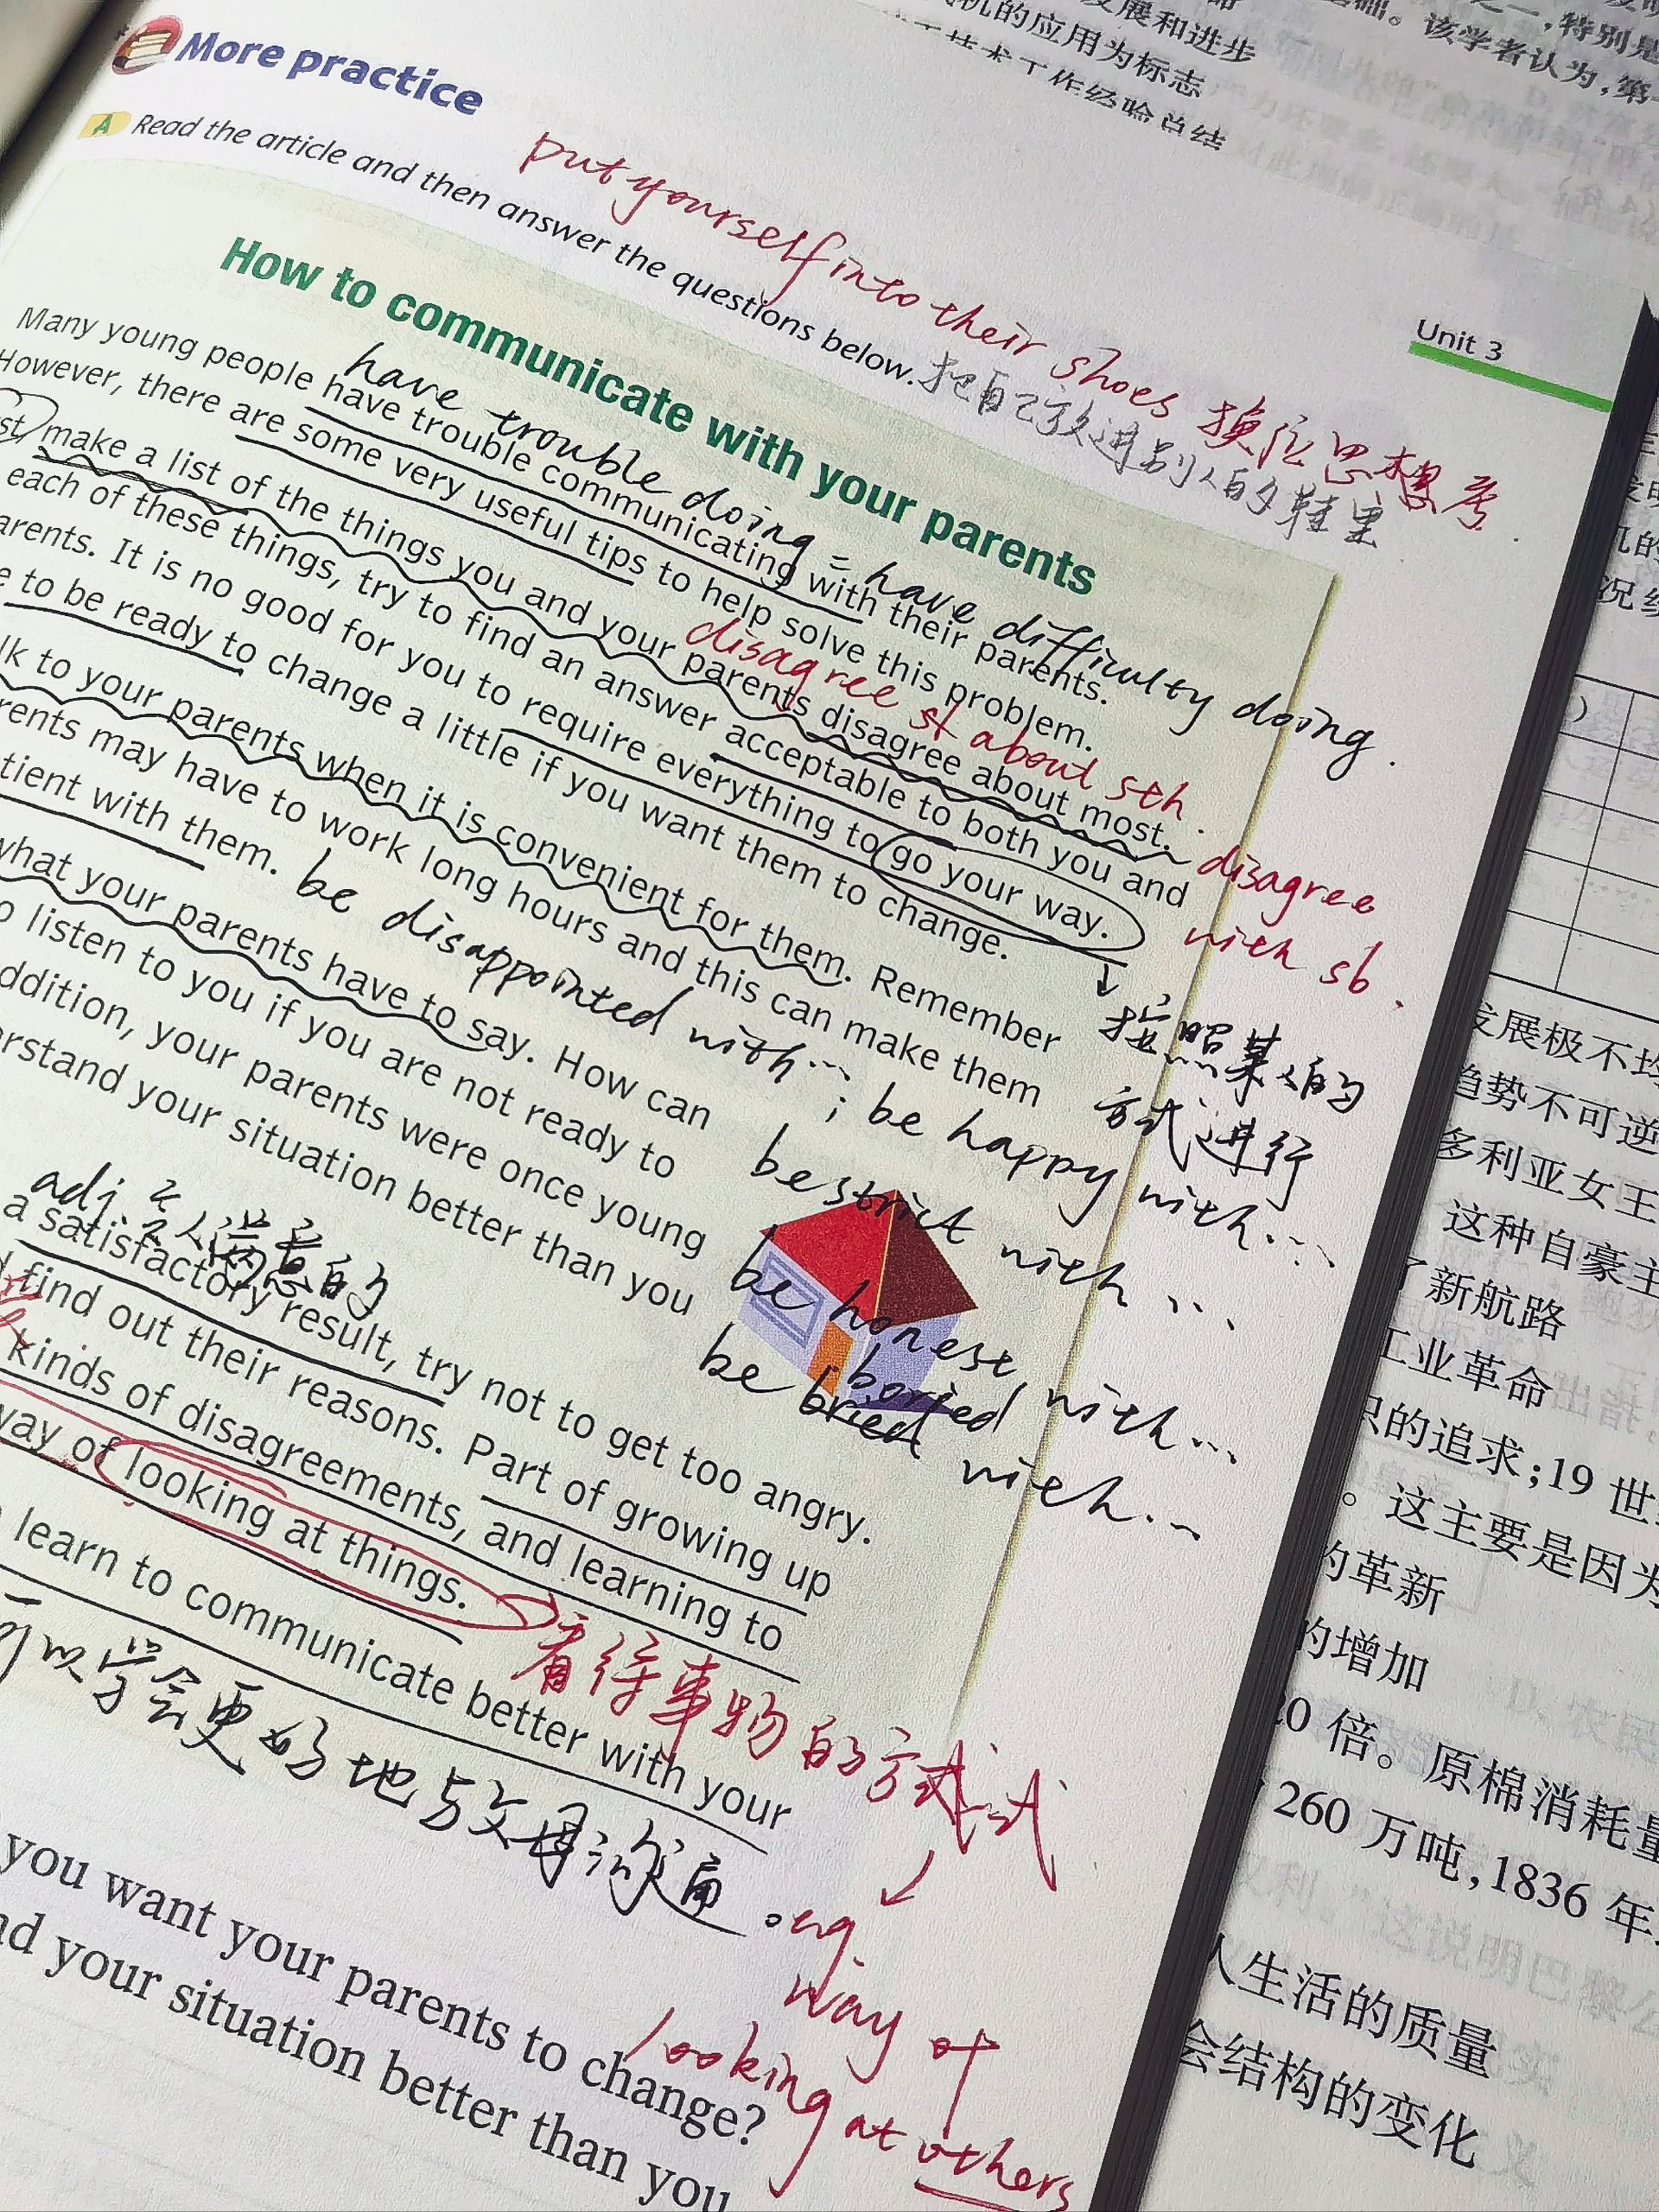 More practice
A Read the article and then answer the questions below.
Unit 3
put yourself into their shoes 换位思想考
把自己放进别人的鞋里
How to communicate with your parents
Many young people have trouble communicating with their parents.
have trouble doing = have difficulty doing.
However, there are some very useful tips to help solve this problem.
make a list of the things you and your parents disagree about most.
disagree about sth.
disagree
with sb.
each of these things, try to find an answer acceptable to both you and
parents. It is no good for you to require everything to go your way.
to be ready to change a little if you want them to change.
按照某人的
方式进行
to your parents when it is convenient for them. Remember
may have to work long hours and this can make them
with them.
be disappointed with…; be happy with…
be strict with…
be honest with…
be bried boried with…
what your parents have to say. How can
listen to you if you are not ready to
addition, your parents were once young
your situation better than you
adj. 令人满意的
a satisfactory result, try not to get too angry.
find out their reasons. Part of growing up
kinds of disagreements, and learning to
way of looking at things.
看待事物的方式
式
learn to communicate better with your
可以学会更好地与父母沟通。
eg.
way of
looking at others
you want your parents to change?
your situation better than you
发展和进步
机的应用为标志
工作经验总结
该学者认为,第一
特别是
发展极不均
趋势不可逆
多利亚女王
这种自豪
了新航路
工业革命
的追求;19 世
。这主要是因为
的革新
的增加
20 倍。原棉消耗量
260 万吨,1836 年
人生活的质量
会结构的变化